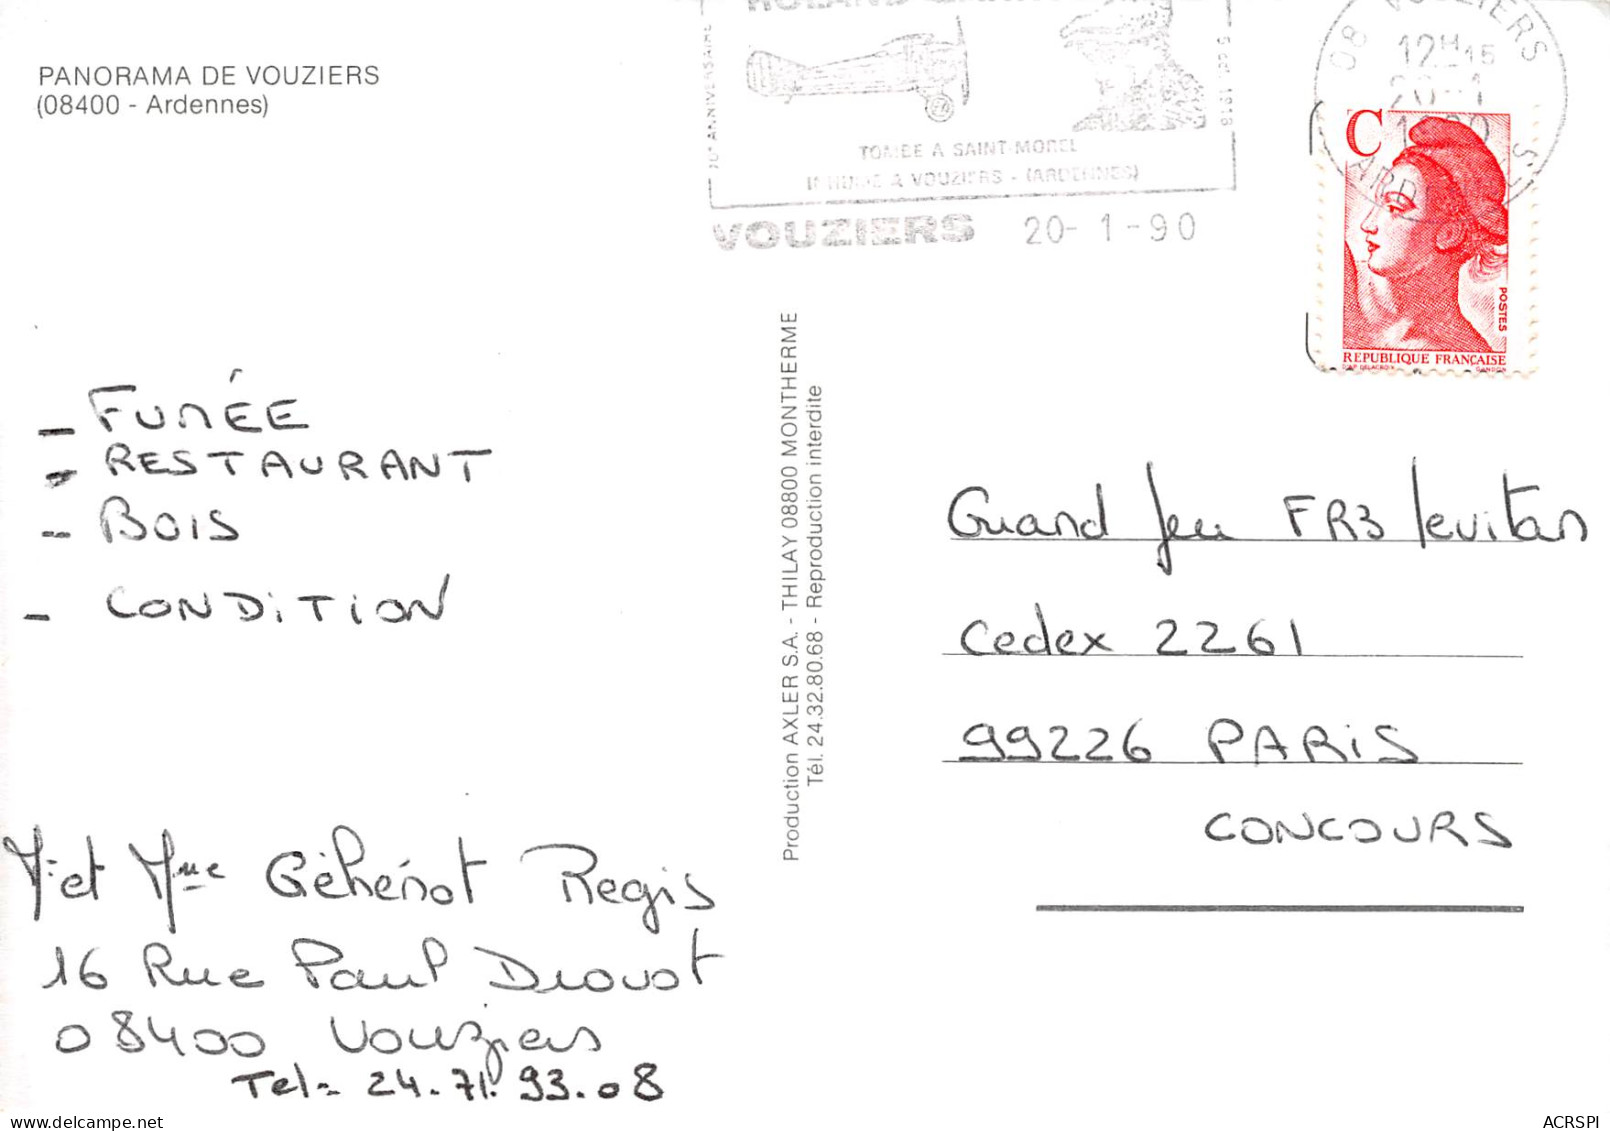 PANORAMA DE VOUZIERS
(08400 - Ardennes)
70e ANNIVERSAIRE
ROLAND
5 oct. 1918
TOMBE A SAINT-MOREL
INHUME A VOUZIERS - (ARDENNES)
VOUZIERS 20-1-90
08 VOUZIERS
12H15
20-1
1990
ARDENNES
C
POSTES
REPUBLIQUE FRANÇAISE
D'AP DELACROIX GANDON
- FUMÉE
- RESTAURANT
- BOIS
- CONDITION
M. et Mme Géhénot Regis
16 Rue Paul Drouot
08400 Vouziers
Tel- 24.71.93.08
Production AXLER S.A. - THILAY 08800 MONTHERME
Tél. 24.32.80.68 - Reproduction interdite
Grand Jeu FR3 levitan
Cedex 2261
99226 PARIS
CONCOURS
ACRSPI